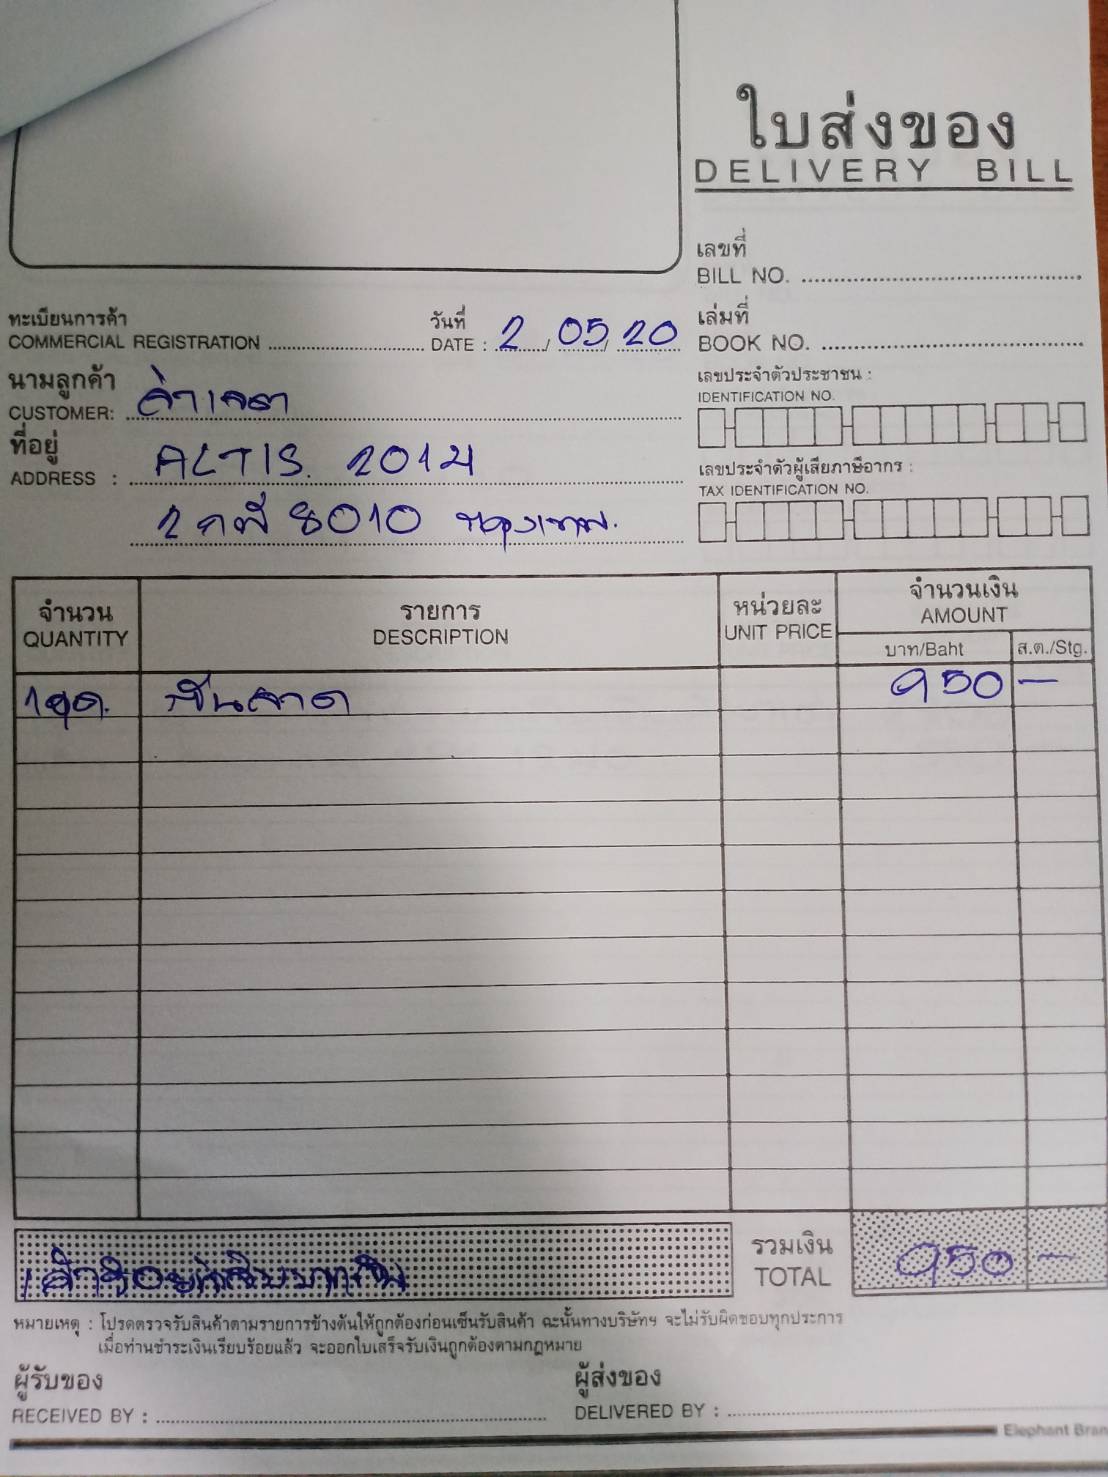 ใบส่งของ
DELIVERY BILL
เลขที่
BILL NO.
ทะเบียนการค้า
COMMERCIAL REGISTRATION
วันที่
DATE : 2/05/20
เล่มที่
BOOK NO.
นามลูกค้า
CUSTOMER:
เลขประจำตัวประชาชน :
IDENTIFICATION NO.
ที่อยู่
ADDRESS : ALTIS. 2014
8010 กรุงเทพ.
เลขประจำตัวผู้เสียภาษีอากร :
TAX IDENTIFICATION NO.
จำนวน
QUANTITY
รายการ
DESCRIPTION
หน่วยละ
UNIT PRICE
จำนวนเงิน
AMOUNT
บาท/Baht
ส.ต./Stg.
1ชุด. 950 –
เก้าร้อยห้าสิบบาทถ้วน
รวมเงิน
TOTAL
950 –
หมายเหตุ : โปรดตรวจรับสินค้าตามรายการข้างต้นให้ถูกต้องก่อนเซ็นรับสินค้า ฉะนั้นทางบริษัทฯ จะไม่รับผิดชอบทุกประการ
เมื่อท่านชำระเงินเรียบร้อยแล้ว จะออกใบเสร็จรับเงินถูกต้องตามกฎหมาย
ผู้รับของ
RECEIVED BY :
ผู้ส่งของ
DELIVERED BY :
Elephant Bran